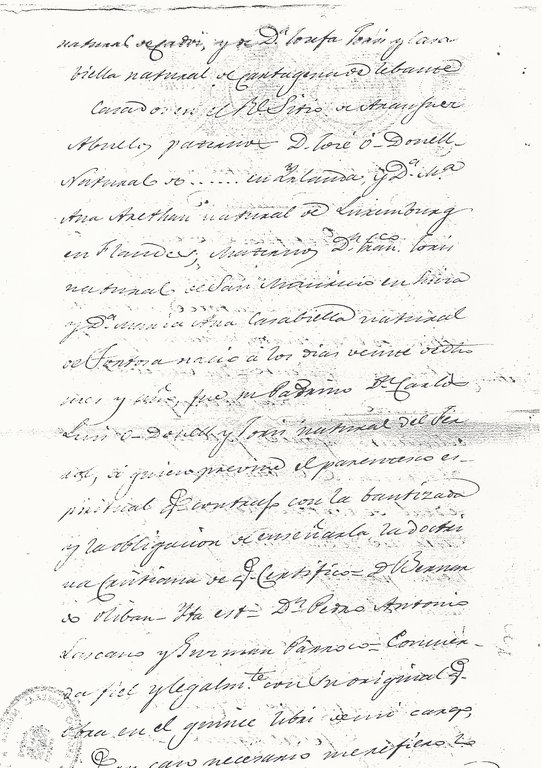 natural de Cadiz, y de D.ª Josefa Joris y Casa
biella natural de Cartagena de lebante
Casados en el Rl Sitio de Aranjuez
Abuelos paternos D. José Ô-Donell
Natural de ...... en Yrlanda, y D.ª M.ª
Ana natural de Luxemburg
en Flandes; Maternos D.n Fran.co Joris
natural de San Mauricio en Suiza
y D.ª Maria Ana Casabiella natural
de Tortosa nacio á los dias veinte de dho
mes y año, fue su Padrino D.n Carlos
Luis Ô-Donell y Joris natural del Fer
rol, á quien previne el parentesco es-
piritual q.e contrajo con la bautizada
y la obligacion de enseñarla la doctri
na Cristiana de q.e Certifico = D Bernar
do Oliban = Yta est = D.n Pedro Antonio
Lascano y Guzman Párroco = Concuer-
da fiel y legalm.te con su original q.e
obra en el quince libro de mi cargo,
en caso necesario me refiero